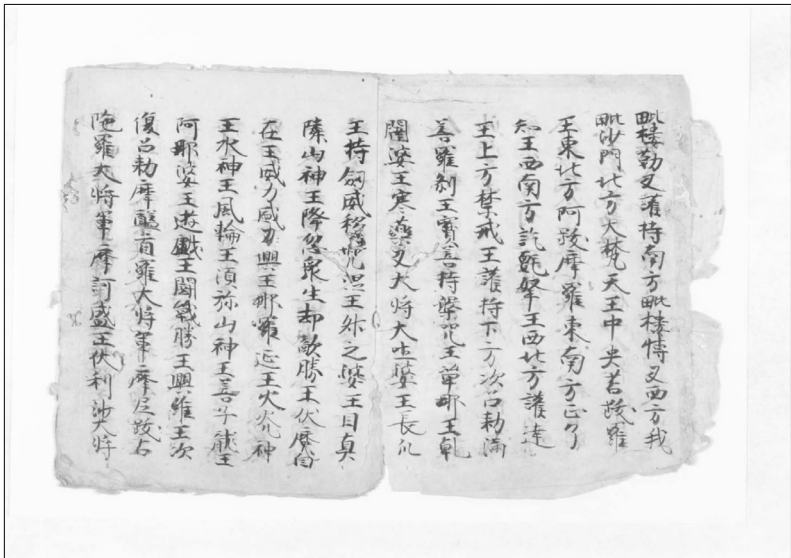 毗樓勒叉護持南方毗樓愽叉西方我
毗沙門北方大梵天王中央若跋羅
王東北方阿跋摩羅東南方正了
知王西南方訖 拏王西北方護達
王上方禁戒王護持下方次召勅滿
善羅剎王實言持 咒王單那王乹
闥婆王寒藥叉大將大吉婆王長爪
王持劒威 咒涅王外之婆王目真
隣山神王降怨衆生却敵勝王伏魔自
在王威力威力興王那羅延王火光神
王水神王風輪王湏弥山神王善子龍王
阿那婆王遊戲王闘戰勝王興雖王次
復召勅摩醯首羅大將軍摩尼跋右
陁羅大將軍摩訶盛王伏利沙大將